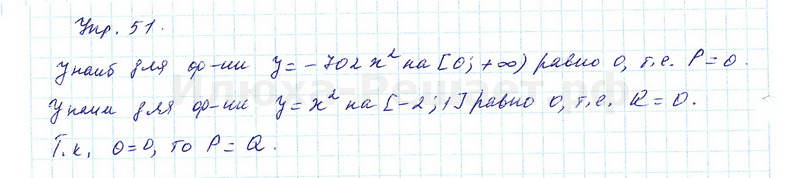 Упр. 51.
Унаиб для ф-ии y = -702x² на [0; +∞) равно 0, т.е. P = 0.
Унаим для ф-ии y = x² на [-2; 1] равно 0, т.е. Q = 0.
Т.к. 0 = 0, то P = Q.